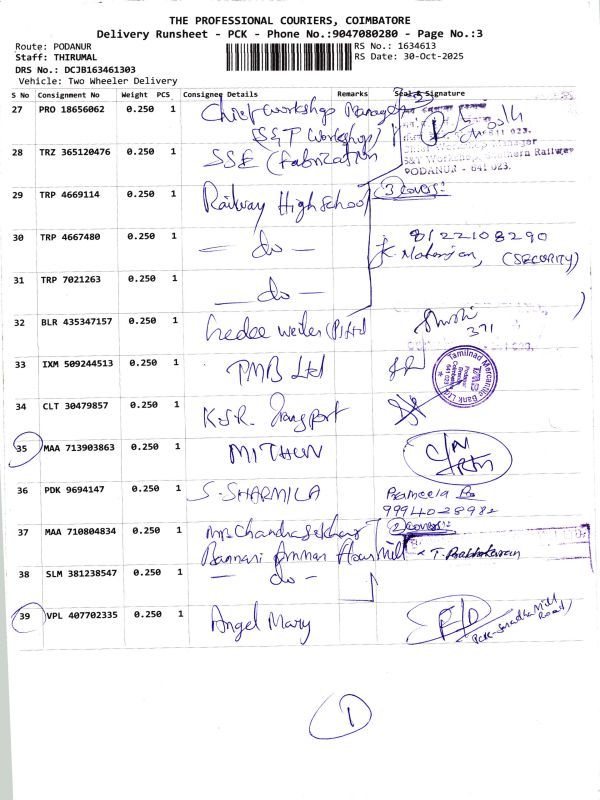 THE PROFESSIONAL COURIERS, COIMBATORE
Delivery Runsheet - PCK - Phone No.:9047080280 - Page No.:3
Route: PODANUR
RS No.: 1634613
Staff: THIRUMAL
RS Date: 30-Oct-2025
DRS No.: DCJB163461303
Vehicle: Two Wheeler Delivery
S No Consignment No Weight PCS Consignee Details Remarks Seal & Signature
27 PRO 18656062 0.250 1 Chief Workshop Manager
S&T Workshop/
28 TRZ 365120476 0.250 1 SSE (Fabrication
Chief Workshop Manager
S&T Workshop, Southern Railway
PODANUR - 641 023.
29 TRP 4669114 0.250 1 Railway High School 3 covers:
30 TRP 4667480 0.250 1 — do — 8122108290
(SECURITY)
31 TRP 7021263 0.250 1 — do —
32 BLR 435347157 0.250 1 371
33 IXM 509244513 0.250 1 TMB Ltd
Tamilnad Mercantile Bank Ltd
34 CLT 30479857 0.250 1 K.S.R. Transport
35 MAA 713903863 0.250 1 MITHUN C/N
RTN
36 PDK 9694147 0.250 1 S. SHARMILA Prameela
9994028982
37 MAA 710804834 0.250 1 Mr. Chandrasekhar 2 covers:
Bannari Amman Flour Mill
38 SLM 381238547 0.250 1 — do —
39 VPL 407702335 0.250 1 Angel Mary
Road)
1